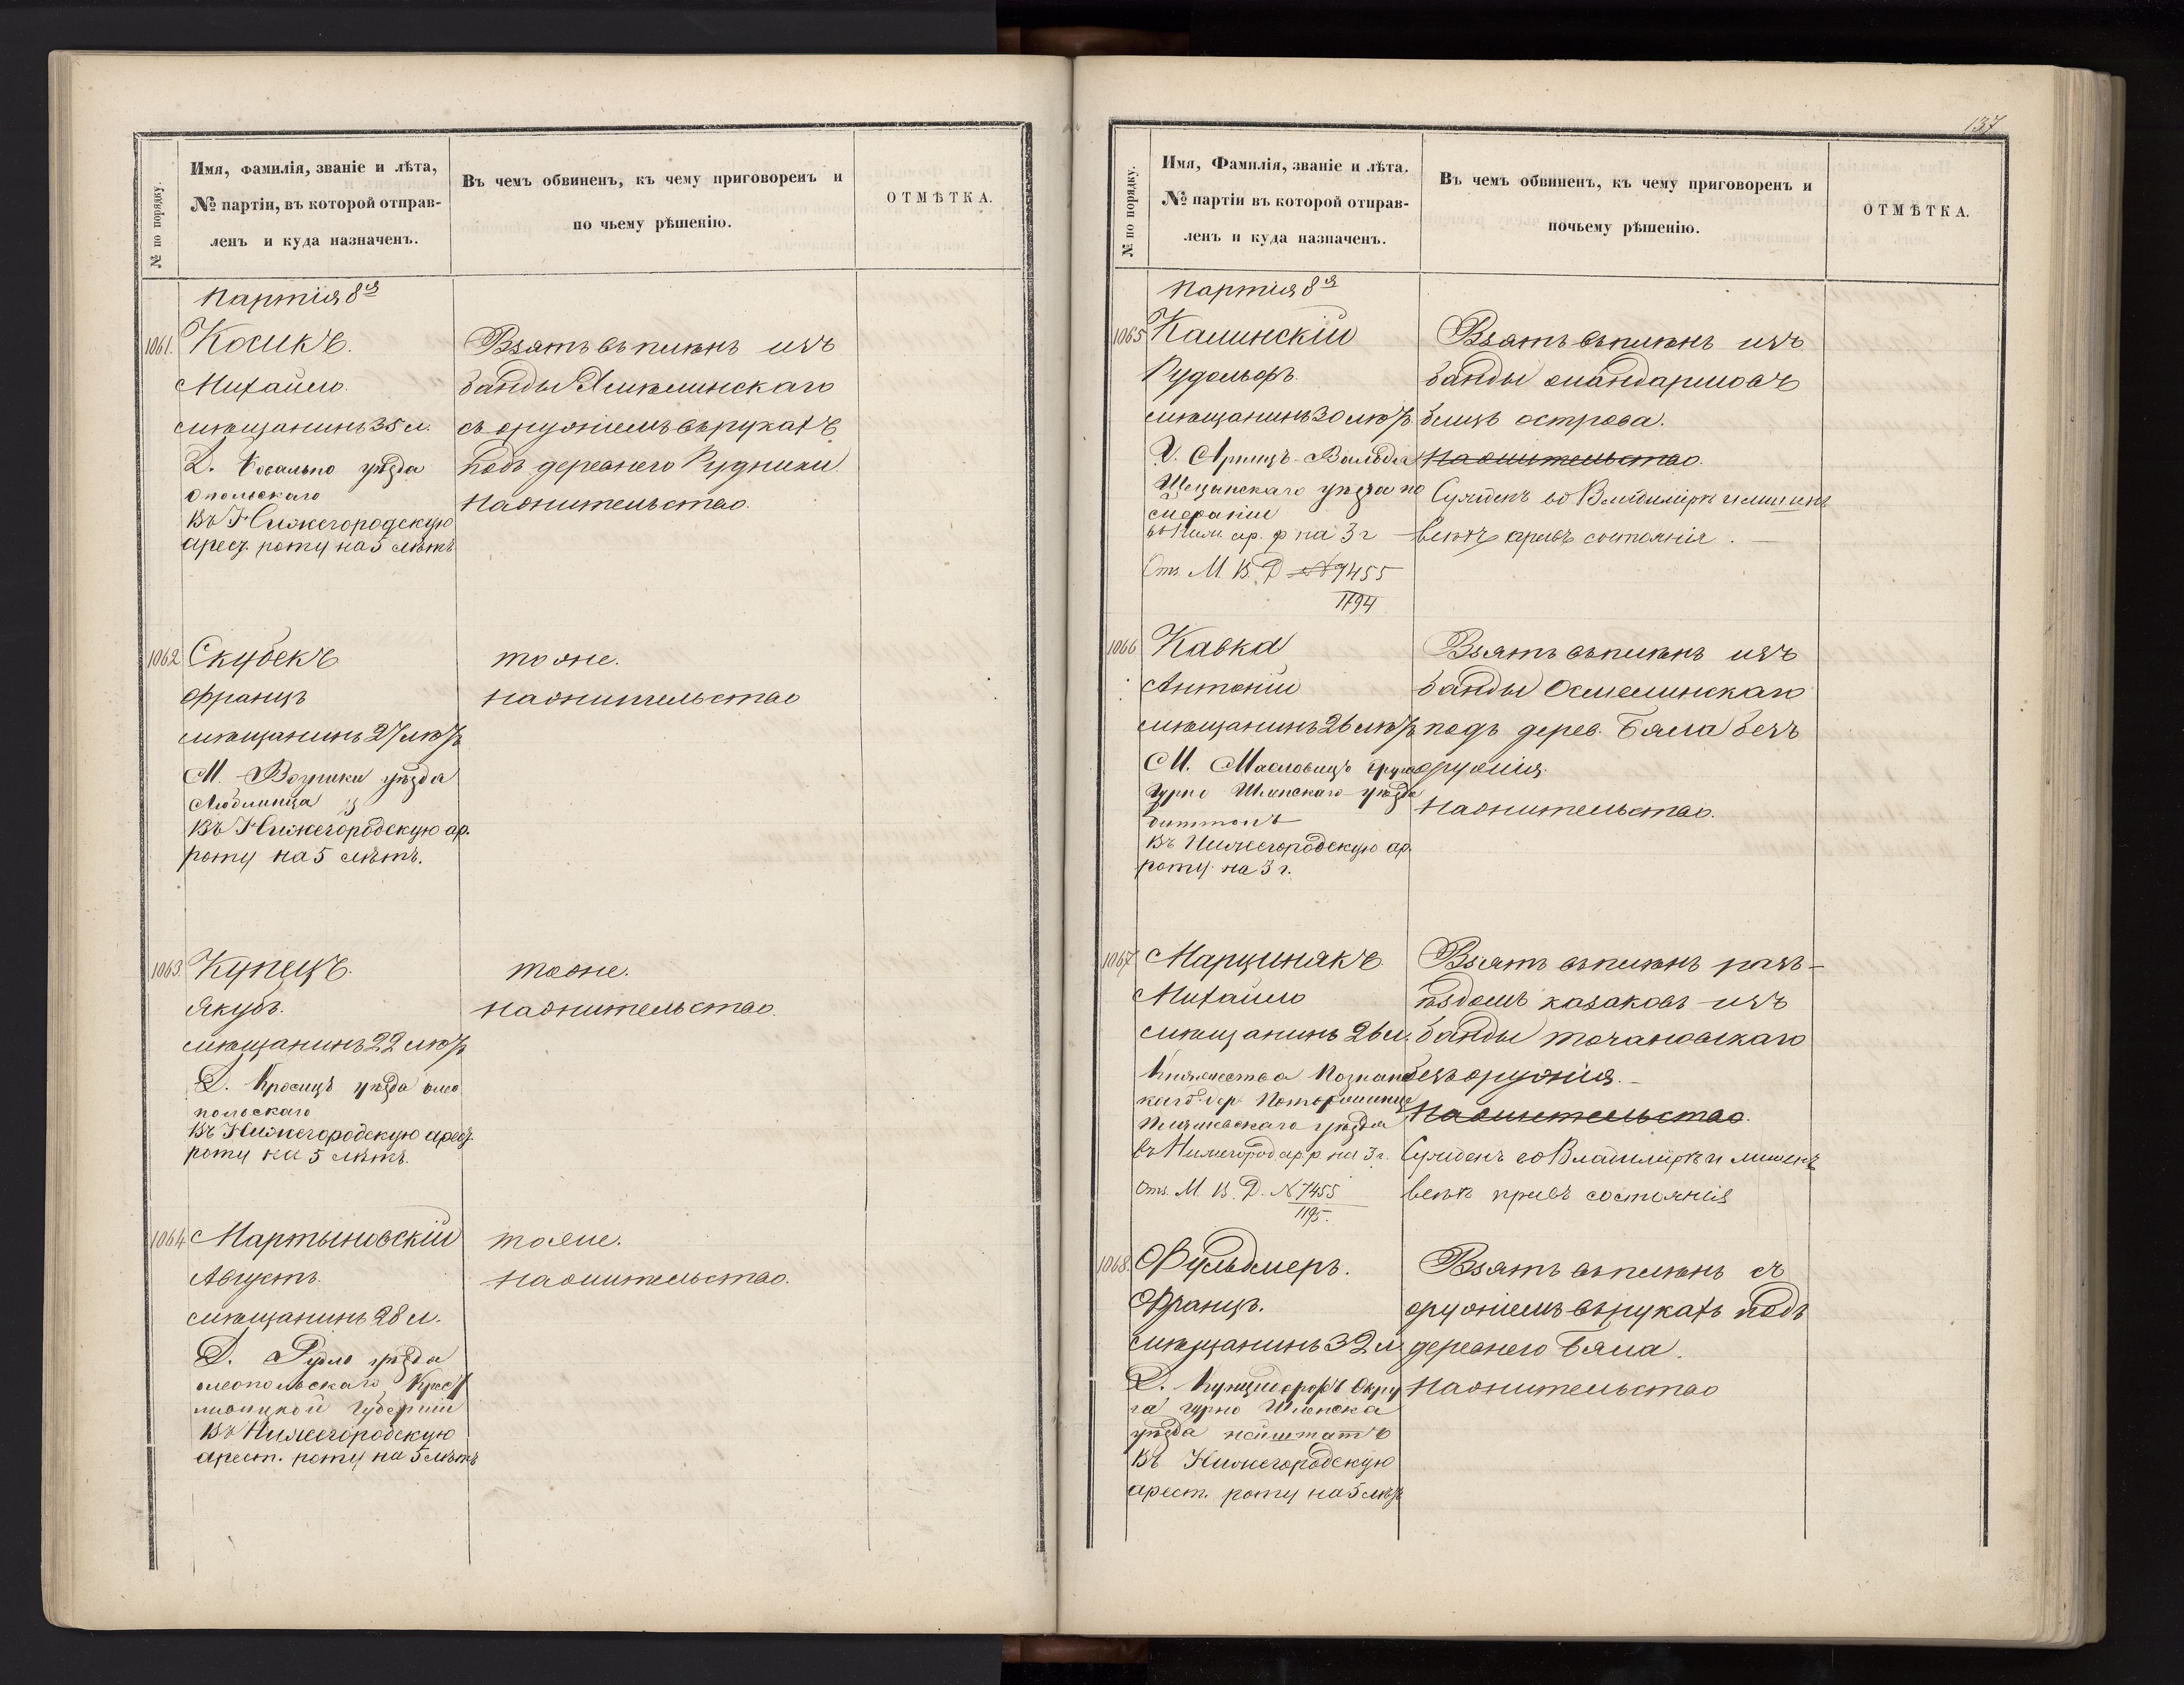 № по порядку.
Имя, фамилія, званіе и лѣта,
№ партіи, въ которой отправ-
ленъ и куда назначенъ.
Въ чемъ обвиненъ, къ чему приговоренъ и
по чьему рѣшенію.
ОТМѢТКА.
Партія 8я
1061.
Косикъ.
Михайло.
мѣщанинъ 35 л.
Д. уѣзда
опольскаго
Въ Нижегородскую
арест. роту на 5 лѣтъ
Взятъ въ плѣнъ изъ
банды
съ оружіемъ въ рукахъ
подъ деревнею Рудники
На жительство.
1062
Скубекъ
Францъ
мѣщанинъ 27 лѣтъ
М. Возники уѣзда
Люблиница
Въ Нижегородскую ар.
роту на 5 лѣтъ.
тоже.
на жительство
1063.
Купецъ.
Якубъ.
мѣщанинъ 22 лѣтъ
Д. уѣзда оле
польскаго
Въ Нижегородскую арест.
роту на 5 лѣтъ.
тоже.
на жительство.
1064
Мартыновскій
Августъ.
мѣщанинъ 28 л.
Д. уѣзда
олеопольскаго
губерніи
Въ Нижегородскую
арест. роту на 5 лѣтъ
тоже.
на жительство.
137
№ по порядку.
Имя, Фамилія, званіе и лѣта.
№ партіи въ которой отправ-
ленъ и куда назначенъ.
Въ чемъ обвиненъ, къ чему приговоренъ и
почьему рѣшенію.
ОТМѢТКА.
Партія 8я
1065
Калинскій
Рудольфъ.
мѣщанинъ 30 лѣтъ
уѣзда по
ар. р на 3 г
Отз. М. В. Д №7455
1194
Взятъ въ плѣнъ изъ
банды жандармовъ
близъ острова.
На жительство.
Сужденъ во Владимірѣ и лишенъ
всѣхъ правъ состоянія.
1066
Кавка
Антоній
мѣщанинъ 26 лѣтъ
М. Масловицъ
Гурно уѣзда
Въ Нижегородскую ар.
роту на 3 г.
Взятъ въ плѣнъ изъ
банды
подъ дерев. Бяла безъ
оружія.
На жительство.
1067
Марцинякъ.
Михайло
мѣщанинъ 26 л.
Княжества Познанс
каго дер.
уѣзда
въ Нижегород. ар. р на 3 г.
Отз. М. В. Д. №7455
1195.
Взятъ въ плѣнъ разъ-
ѣздомъ казаковъ изъ
банды Точановскаго
безъ оружія.
На жительство.
Сужденъ во Владимірѣ и лишенъ
всѣхъ правъ состоянія
1068.
Фульдмеръ.
Францъ.
мѣщанинъ 32 л
Д. Окру
га Гурно Шленска
уѣзда Нейштатъ
Въ Нижегородскую
арест. роту на 5 лѣтъ
Взятъ въ плѣнъ съ
оружіемъ въ рукахъ подъ
деревнею Бяла.
На жительство